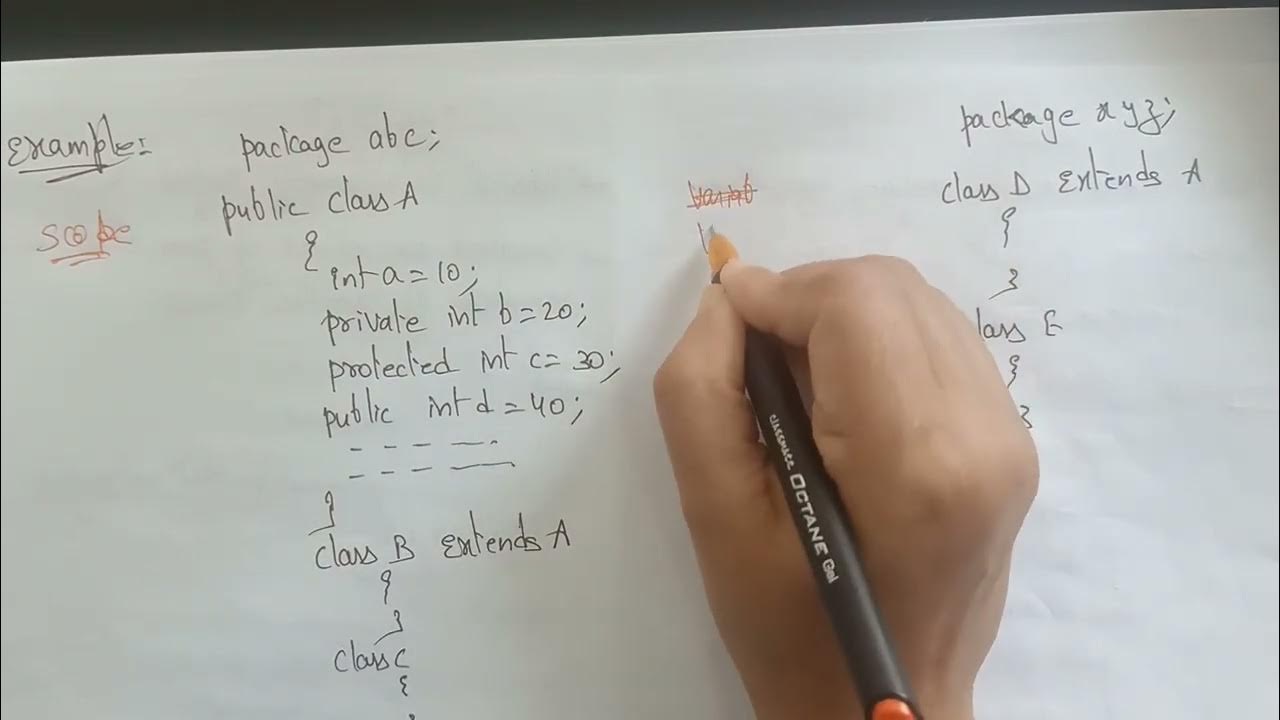 Example:
scope
package abc;
public class A
{
int a = 10;
private int b = 20;
protected int c = 30;
public int d = 40;
}
class B extends A
{
}
class C
{
package xyz;
class D extends A
{
}
lass E
{
}
classmate OCTANE Gel